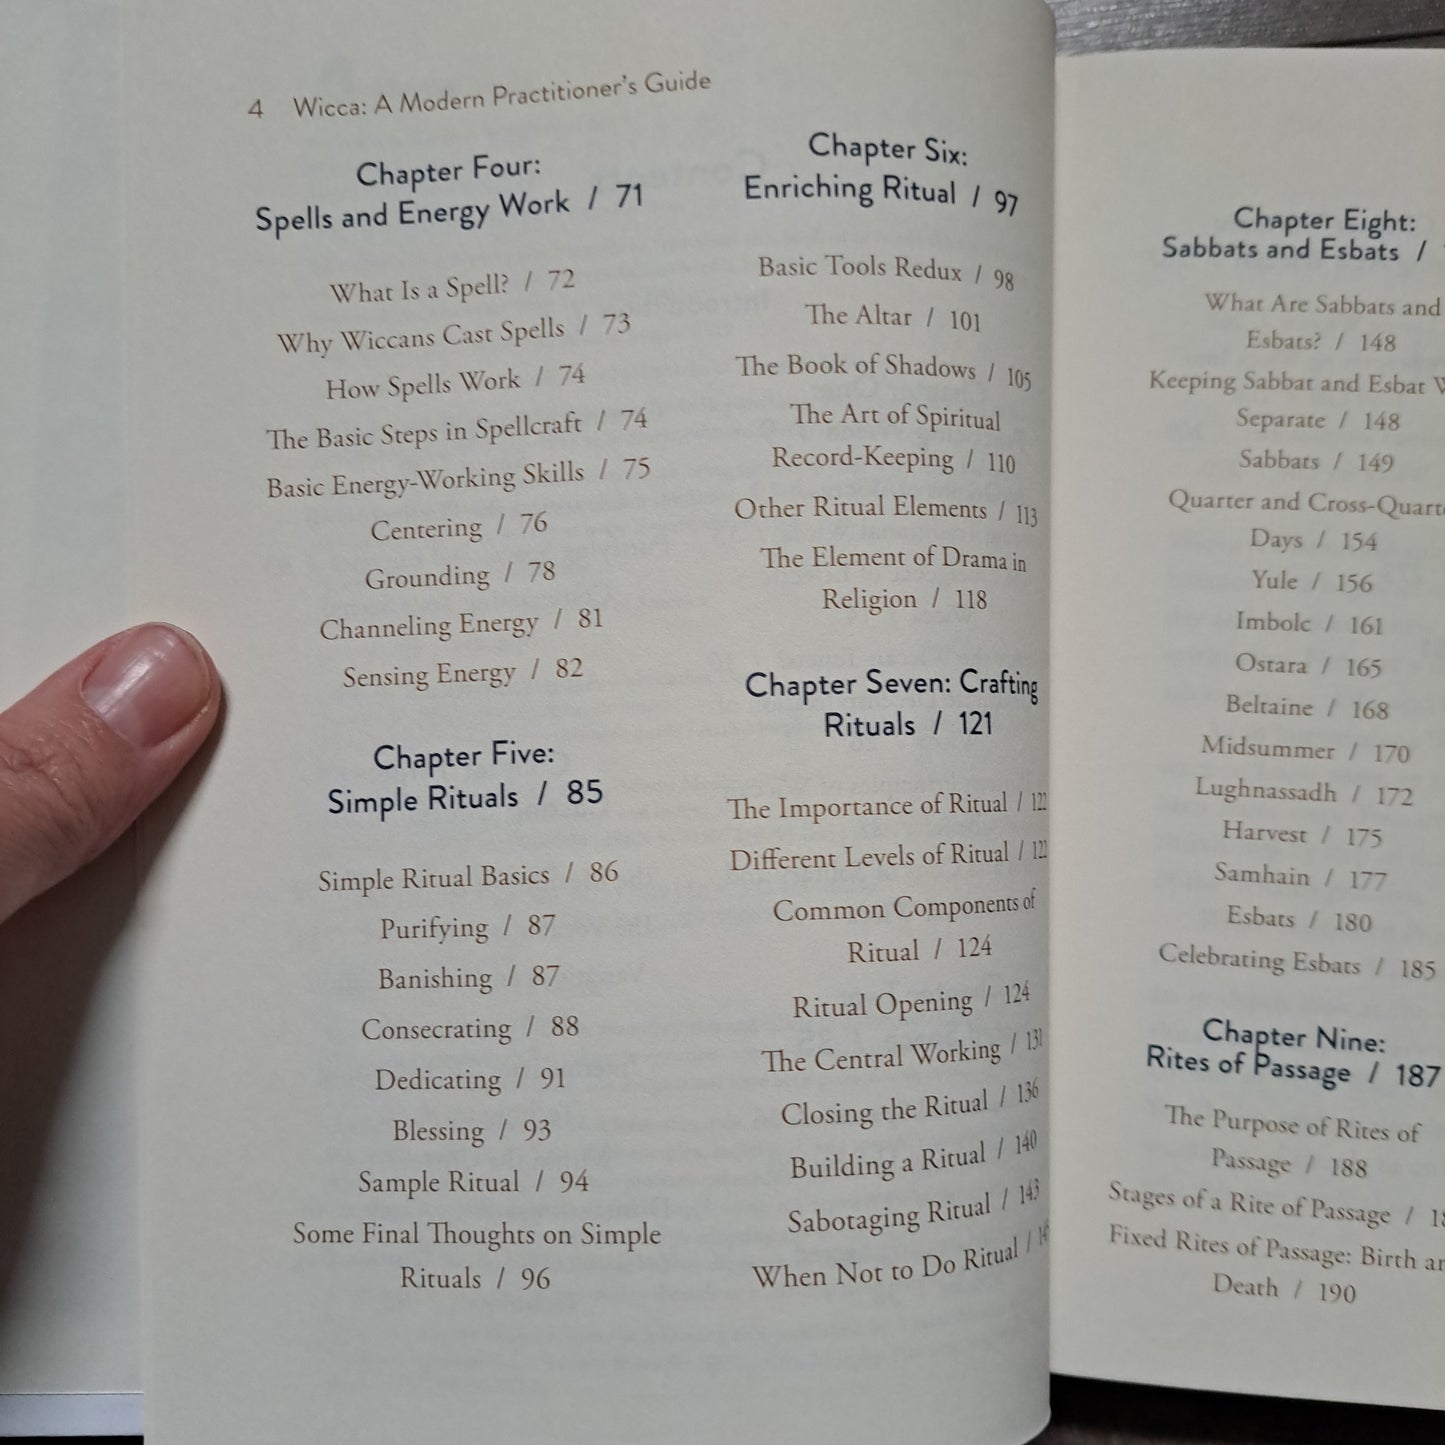 4 Wicca: A Modern Practitioner's Guide
Chapter Four:
Spells and Energy Work / 71
What Is a Spell? / 72
Why Wiccans Cast Spells / 73
How Spells Work / 74
The Basic Steps in Spellcraft / 74
Basic Energy-Working Skills / 75
Centering / 76
Grounding / 78
Channeling Energy / 81
Sensing Energy / 82
Chapter Five:
Simple Rituals / 85
Simple Ritual Basics / 86
Purifying / 87
Banishing / 87
Consecrating / 88
Dedicating / 91
Blessing / 93
Sample Ritual / 94
Some Final Thoughts on Simple
Rituals / 96
Chapter Six:
Enriching Ritual / 97
Basic Tools Redux / 98
The Altar / 101
The Book of Shadows / 105
The Art of Spiritual
Record-Keeping / 110
Other Ritual Elements / 113
The Element of Drama in
Religion / 118
Chapter Seven: Crafting
Rituals / 121
The Importance of Ritual / 122
Different Levels of Ritual / 122
Common Components of
Ritual / 124
Ritual Opening / 124
The Central Working / 131
Closing the Ritual / 136
Building a Ritual / 140
Sabotaging Ritual / 143
When Not to Do Ritual /
Chapter Eight:
Sabbats and Esbats /
What Are Sabbats and
Esbats? / 148
Keeping Sabbat and Esbat
Separate / 148
Sabbats / 149
Quarter and Cross-Quart
Days / 154
Yule / 156
Imbolc / 161
Ostara / 165
Beltaine / 168
Midsummer / 170
Lughnassadh / 172
Harvest / 175
Samhain / 177
Esbats / 180
Celebrating Esbats / 185
Chapter Nine:
Rites of Passage / 187
The Purpose of Rites of
Passage / 188
Stages of a Rite of Passage /
Fixed Rites of Passage: Birth
Death / 190